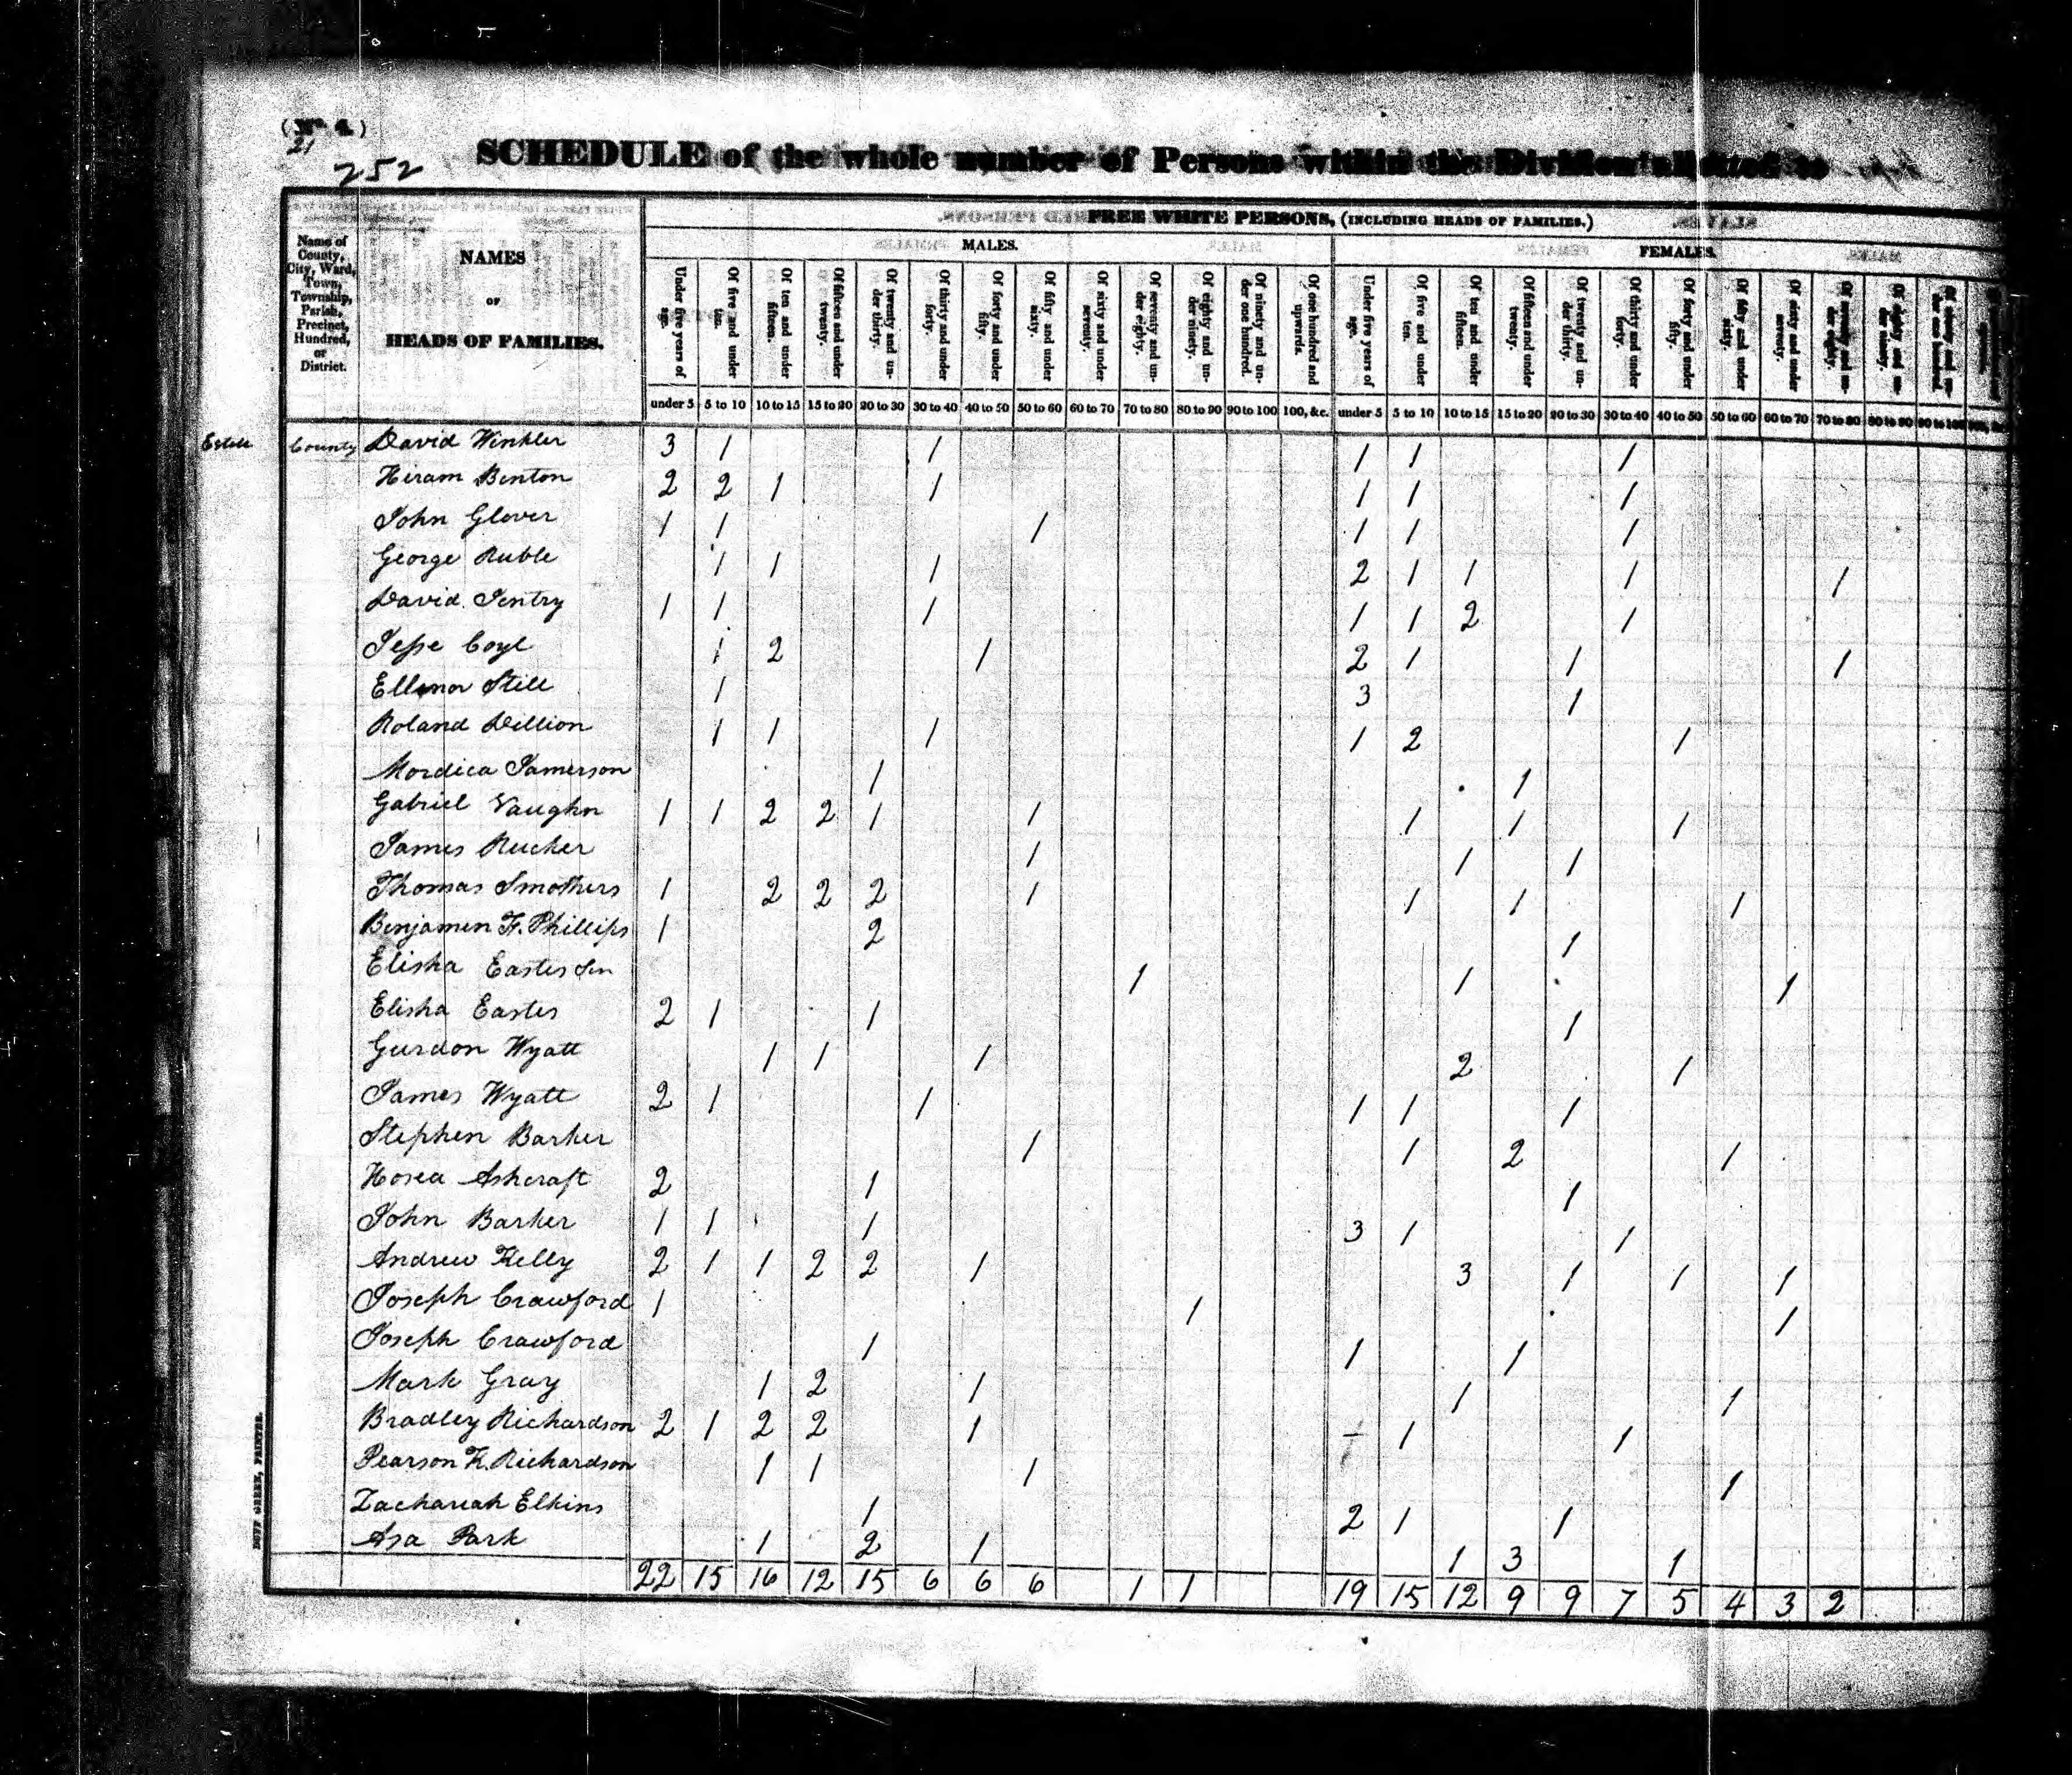 (No. 4.)
21
252
SCHEDULE of the whole number of Persons within the Division allotted to
FREE WHITE PERSONS, (INCLUDING HEADS OF FAMILIES.)
MALES. FEMALES.
Name of County, City, Ward, Town, Township, Parish, Precinct, Hundred, or District.
NAMES
OF
HEADS OF FAMILIES.
Under five years of age. Of five and under ten. Of ten and under fifteen. Of fifteen and under twenty. Of twenty and under thirty. Of thirty and under forty. Of forty and under fifty. Of fifty and under sixty. Of sixty and under seventy. Of seventy and under eighty. Of eighty and under ninety. Of ninety and under one hundred. Of one hundred and upwards. Under five years of age. Of five and under ten. Of ten and under fifteen. Of fifteen and under twenty. Of twenty and under thirty. Of thirty and under forty. Of forty and under fifty. Of fifty and under sixty. Of sixty and under seventy. Of seventy and under eighty. Of eighty and under ninety. Of ninety and under one hundred.
under 5 5 to 10 10 to 15 15 to 20 20 to 30 30 to 40 40 to 50 50 to 60 60 to 70 70 to 80 80 to 90 90 to 100 100, &c. under 5 5 to 10 10 to 15 15 to 20 20 to 30 30 to 40 40 to 50 50 to 60 60 to 70 70 to 80 80 to 90 90 to 100
Estell County David Winkler 3 1 1 1 1 1
Hiram Benton 2 2 1 1 1 1 1
John Glover 1 1 1 1 1 1
George Ruble 1 1 1 2 1 1 1 1
David Jentry 1 1 1 1 1 2 1
Jesse Coyl 1 2 1 2 1 1 1
Ellenor Still 1 3 1
Roland Dillion 1 1 1 1 2 1
Mordica Jamerson 1 1
Gabriel Vaughn 1 1 2 2 1 1 1 1 1
James Rucker 1 1 1
Thomas Smothers 1 2 2 2 1 1 1 1
Benjamen F. Phillips 1 2 1
Elisha Eastes Sen 1 1 1
Elisha Eastes 2 1 1 1
Gurdon Wyatt 1 1 1 2 1
James Wyatt 2 1 1 1 1 1
Stephen Barker 1 1 2 1
Hosea Ashcraft 2 1 1
John Barker 1 1 1 3 1 1
Andrew Kelly 2 1 1 2 2 1 3 1 1 1
Joseph Crawford 1 1 1
Joseph Crawford 1 1 1
Mark Gray 1 2 1 1 1
Bradley Richardson 2 1 2 2 1 1 1
Pearson K. Richardson 1 1 1 1
Zachariah Elkins 1 2 1 1
Asa Park 1 2 1 1 3 1
22 15 16 12 15 6 6 6 1 1 19 15 12 9 9 7 5 4 3 2
DUFF GREEN, PRINTER.